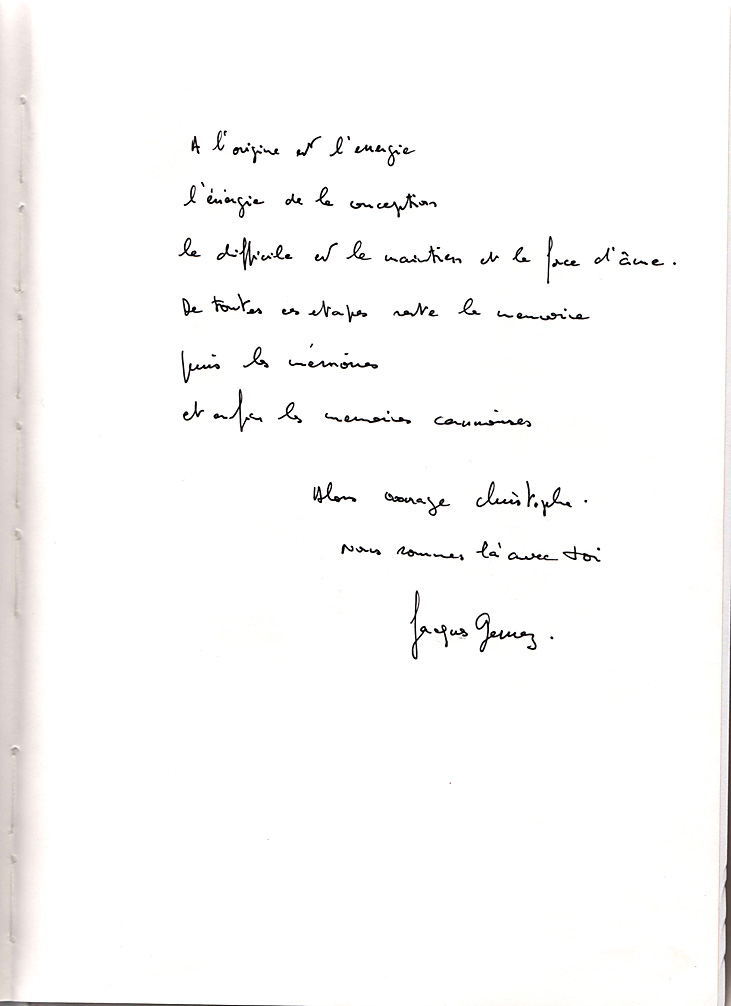 A l'origine est l'energie
l'énergie de la conception
le difficile est le maintien et la force d'âme.
De toutes ces etapes reste la memoire
puis les mémoires
et enfin les memoires communes
Alors courage christophe.
Nous sommes là avec toi
Jacques